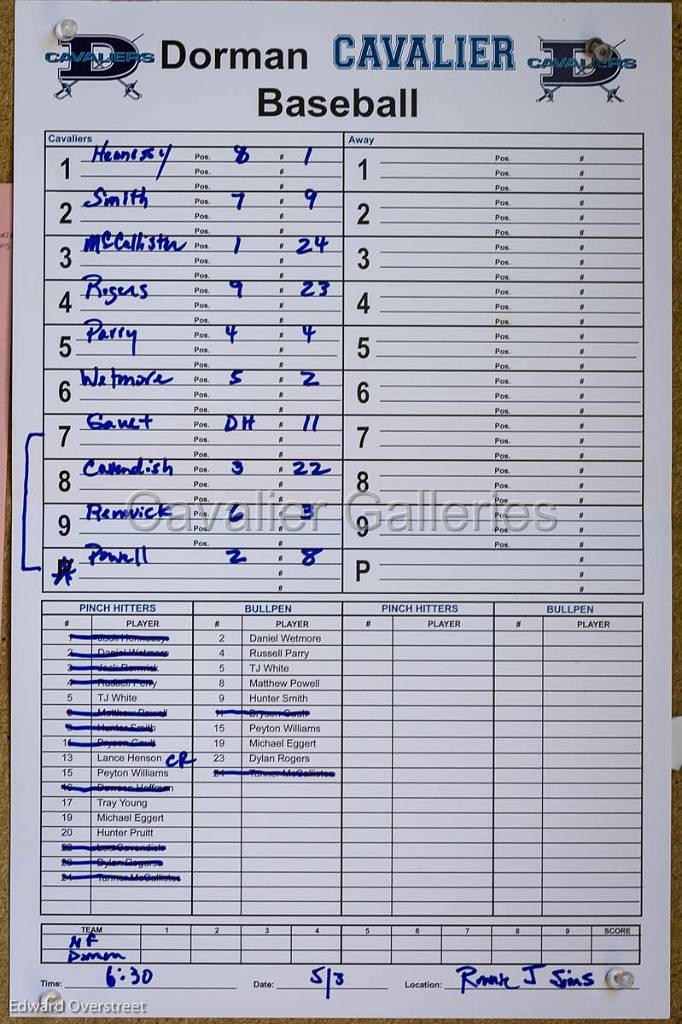 CAVALIERS D Dorman CAVALIER CAVALIERS D
Baseball
Cavaliers Away
1 Hennessy Pos. 8 # 1
2 Smith Pos. 7 # 9
3 McCallister Pos. 1 # 24
4 Rogers Pos. 9 # 23
5 Parry Pos. 4 # 4
6 Wetmore Pos. 5 # 2
7 Gault Pos. DH # 11
8 Cavendish Pos. 3 # 22
9 Renwick Pos. 6 # 3
Powell 2 # 8
1 Pos. #
2 Pos. #
3 Pos. #
4 Pos. #
5 Pos. #
6 Pos. #
7 Pos. #
8 Pos. #
9 Pos. #
P #
Cavalier Galleries
PINCH HITTERS BULLPEN PINCH HITTERS BULLPEN
# PLAYER # PLAYER # PLAYER # PLAYER
1 Jack Hennessy 2 Daniel Wetmore
2 Daniel Wetmore 4 Russell Parry
3 Jack Renwick 5 TJ White
4 Russell Parry 8 Matthew Powell
5 TJ White 9 Hunter Smith
8 Matthew Powell 11 Bryson Gault
9 Hunter Smith 15 Peyton Williams
11 Bryson Gault 19 Michael Eggert
13 Lance Henson CR 23 Dylan Rogers
15 Peyton Williams 24 Tanner McCallister
16 Dawson Hoffman
17 Tray Young
19 Michael Eggert
20 Hunter Pruitt
22 Cavendish
23 Dylan Rogers
24 Tanner McCallister
TEAM 1 2 3 4 5 6 7 8 9 SCORE
NF
Dorman
Time: 6:30 Date: 5/3 Location: Ronnie J Sims
Edward Overstreet